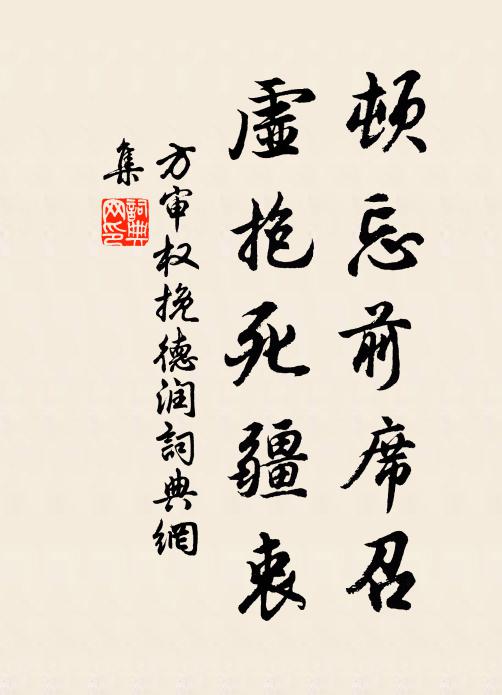 顿忘前席召
虚抱死疆衷
方审权挽德润詞典網
集
詞典网印